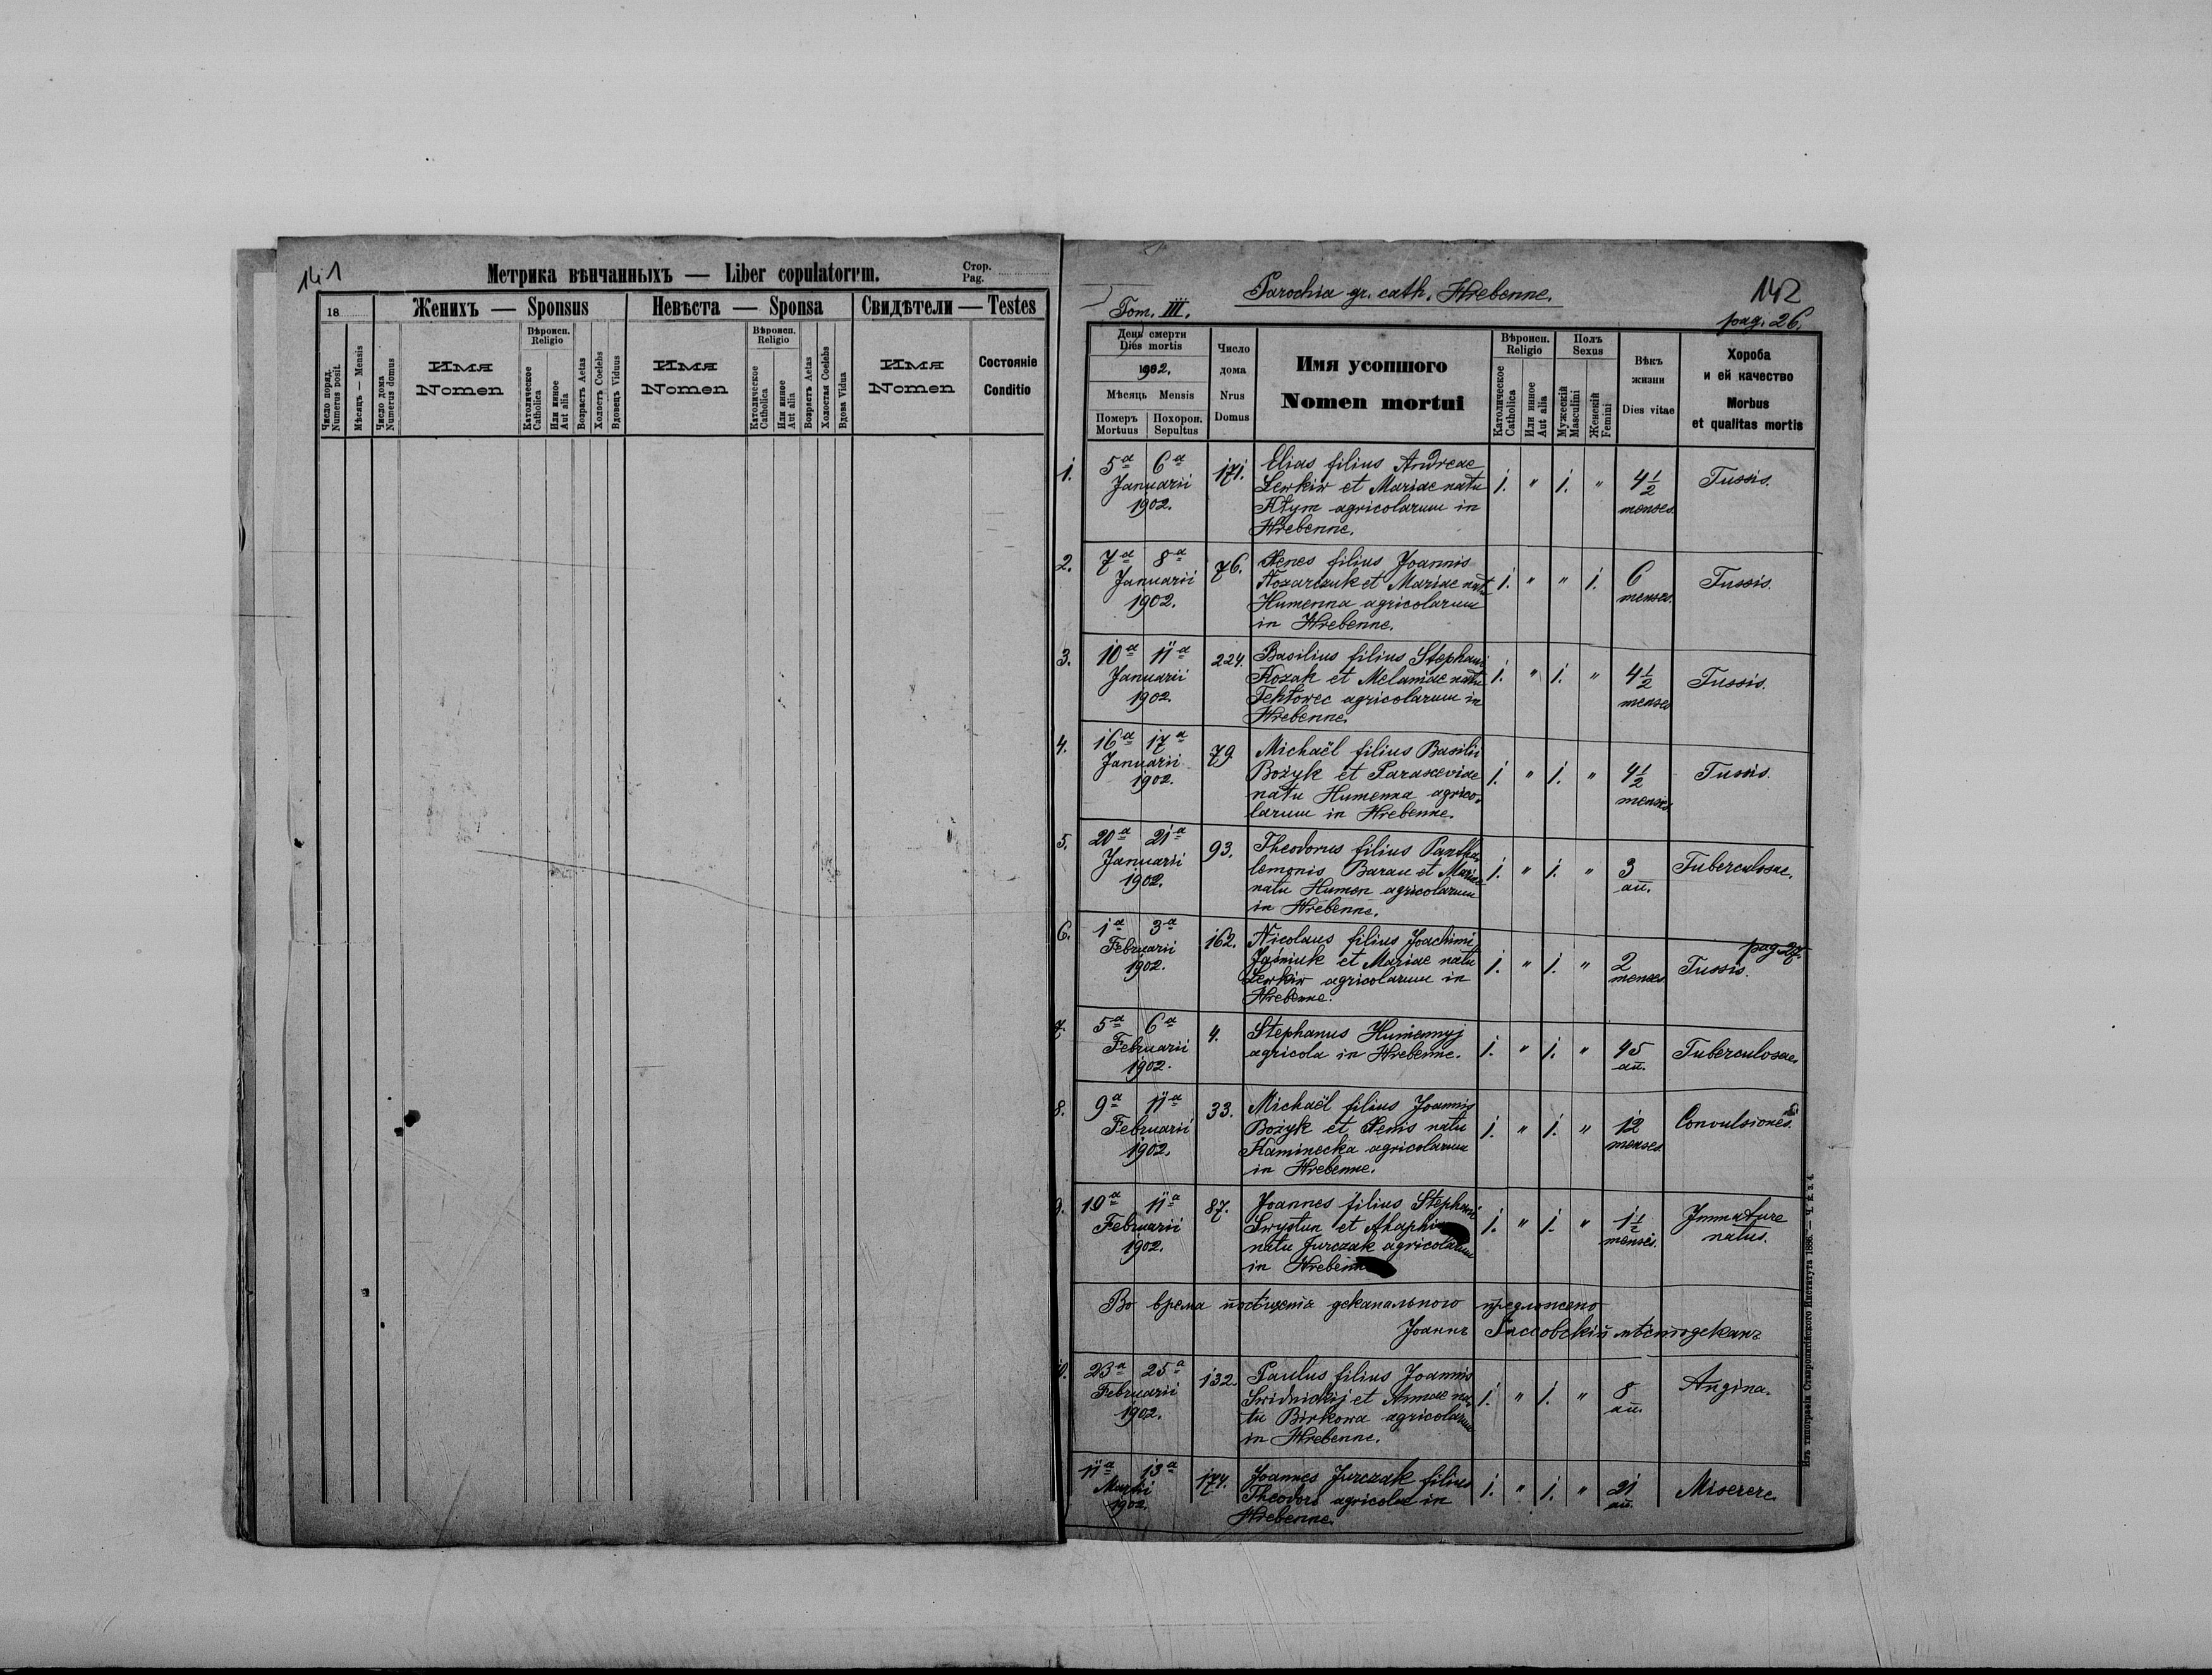 141
Метрика вѣнчанныхъ — Liber copulatorum.
Стор.
Pag.
18
Женихъ — Sponsus
Невѣста — Sponsa
Свидѣтели — Testes
Число поряд.
Numerus posit.
Мѣсяць — Mensis
Число дома
Numerus domus
Имя
Nomen
Вѣроисп.
Religio
Католическое
Catholica
Или инное
Aut alia
Возрастъ Aetas
Холостъ Coelebs
Вдовець Viduus
Имя
Nomen
Вѣроисп.
Religio
Католическое
Catholica
Или инное
Aut alia
Возрастъ Aetas
Холостая Coelebs
Вдова Vidua
Имя
Nomen
Состояніе
Conditio
Parochia gr. cath. Hrebenne.
142
Tom. III.
pag. 26.
День смерти
Dies mortis
1902.
Мѣсяць Mensis
Померъ
Mortuus
Похорон.
Sepultus
Число
дома
Nrus
Domus
Имя усопшого
Nomen mortui
Вѣроисп.
Religio
Католическое
Catholica
Или инное
Aut alia
Полъ
Sexus
Мужескій
Masculini
Женскій
Femini
Вѣкъ
жизни
Dies vitae
Хороба
и ей качество
Morbus
et qualitas mortis
1. 5a 6a 171. Elias filius Andreae
Januarii Lewkiw et Mariae natu 1. " 1. " 4 1/2 Tussis.
1902. Kłym agricolarum in menses.
Hrebenne.
2. 7a 8a 76. Xenes filius Joannis
Januarii Kozarczuk et Mariae natu 1. " " 1. 6 Tussis.
1902. Humenna agricolarum menses.
in Hrebenne.
3. 10a 11a 224. Basilius filius Stephani
Januarii Kozak et Melaniae natu 1. " 1. " 4 1/2 Tussis.
1902. Fektorec agricolarum in menses
Hrebenne.
4. 16a 17a 79. Michaël filius Basilii
Januarii Bożyk et Parasceviae 1. " 1. " 4 1/2 Tussis.
1902. natu Humenna agrico-
larum in Hrebenne. menses
5. 20a 21a 93. Theodorus filius Pantha-
Januarii lemonis Baran et Mariae 1. " 1. " 3 Tuberculosae.
1902. natu Humen agricolarum an.
in Hrebenne.
6. 1a 3a 162. Nicolaus filius Joachimi
pag. 27.
Februarii Jaśniuk et Mariae natu 1. " 1. " 2 Tussis.
1902. Lewkiw agricolarum in menses.
Hrebenne.
7. 5a 6a 4. Stephanus Humennyj
Februarii agricola in Hrebenne. 1. " 1. " 45 Tuberculosae.
1902. an.
8. 9a 11a 33. Michaël filius Joannis
Februarii Bożyk et Xenis natu 1. " 1. " 12 Convulsiones.
1902. Kaminecka agricolarum menses.
in Hrebenne.
9. 19a 11a 87. Joannes filius Stephani Immature
Februarii Swystun et 1. " 1. " 1 1/2 natus.
1902. natu Jurczak agricolarum menses.
in Hrebenne
Во время посѣщенія деканального предложено
Іоаннъ мѣстодеканъ
10. 23a 25a 132. Paulus filius Joannis
Februarii Swidnickij et Annae na- 1. " 1. " 8 Angina.
1902. tu Birkowa agricolarum an.
in Hrebenne.
11a 13a 174. Joannes Jurczak filius
Martii Theodori agricolae in 1. " 1. " 21 Miserere.
1902. Hrebenne. an.
Изъ типографіи Ставропигійского Института 1886.